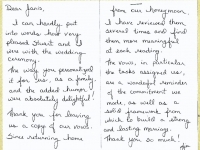 Dear Jans,
I can hardly put
into words how very
pleased Stuart and I
were with the wedding
ceremony.
The way you personalized
it for us, as a family,
and the added humor
were absolutely delightful!
Thank you for leaving
us a copy of our vows.
Since returning home
from our honeymoon
I have reviewed them
several times and find
them more meaningful
at each reading.
The vows, in particular,
the tasks assigned us,
are a wonderful reminder
of the commitment we
made, as well as a
solid framework from
which to build a strong
and lasting marriage.
Thank you so much!